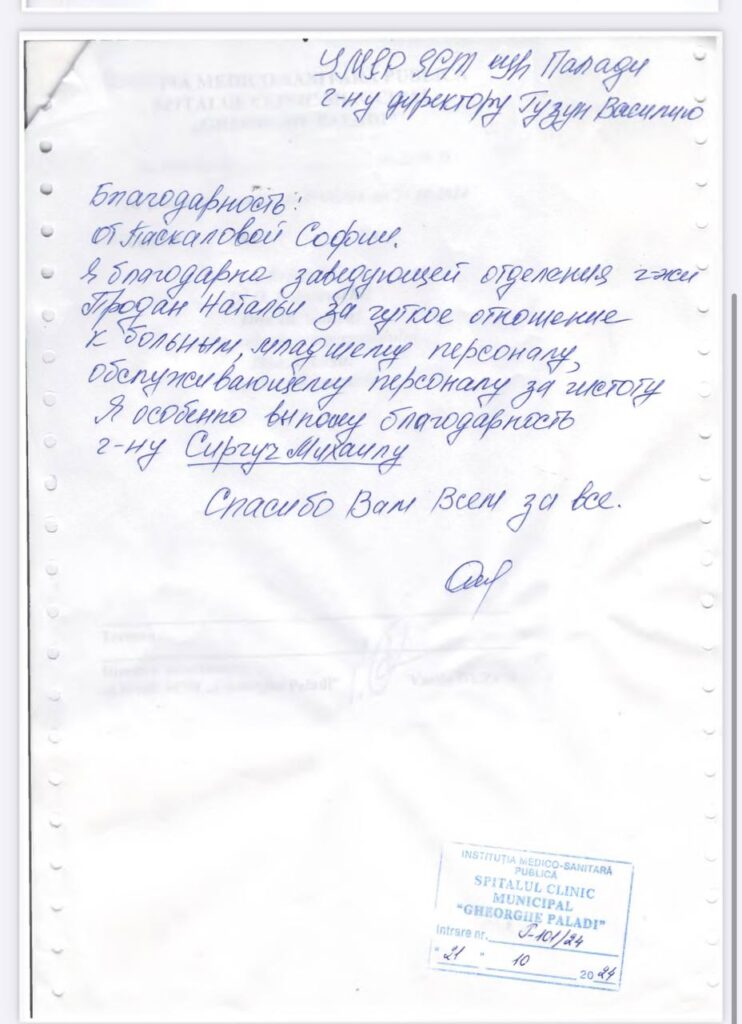 г-ну директору Гузун Василию
Благодарность:
от Паскаловой Софии.
Я благодарна заведующей отделения г-жи
Продан Натальи за чуткое отношение
к больным, младшему персоналу,
обслуживающему персоналу за чистоту
Я особенно выношу благодарность
г-ну Сиргуч Михаилу
Спасибо Вам Всем за все.
INSTITUȚIA MEDICO-SANITARĂ
PUBLICĂ
SPITALUL CLINIC
MUNICIPAL
"GHEORGHE PALADI"
Intrare nr. P-101/24
"21" 10 2024